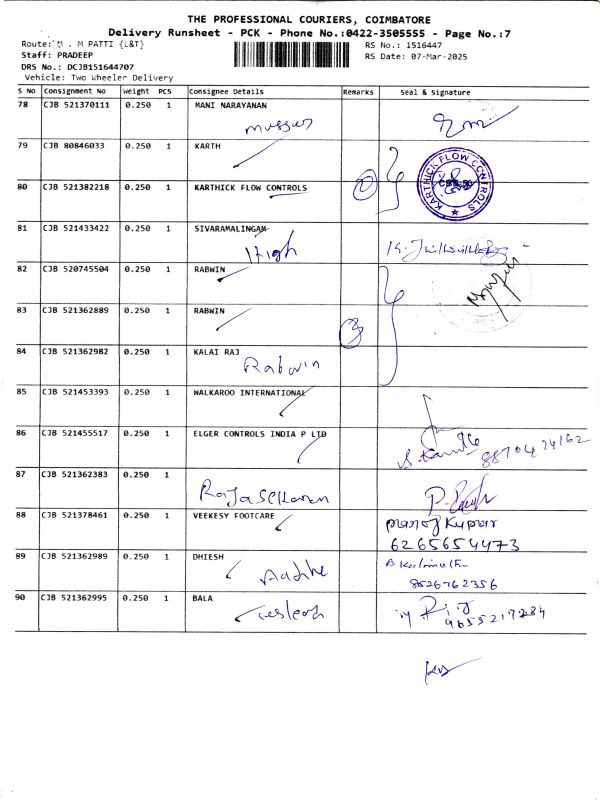 THE PROFESSIONAL COURIERS, COIMBATORE
Delivery Runsheet - PCK - Phone No.:0422-3505555 - Page No.:7
Route: M PATTI {L&T}
RS No.: 1516447
Staff: PRADEEP
RS Date: 07-Mar-2025
DRS No.: DCJB151644707
Vehicle: Two Wheeler Delivery
S No Consignment No Weight PCS Consignee Details Remarks Seal & Signature
78 CJB 521370111 0.250 1 MANI NARAYANAN
79 CJB 80846033 0.250 1 KARTH
KARTHICK FLOW CONTROLS
80 CJB 521382218 0.250 1 KARTHICK FLOW CONTROLS 2
81 CJB 521433422 0.250 1 SIVARAMALINGAM
High
82 CJB 520745504 0.250 1 RABWIN
83 CJB 521362889 0.250 1 RABWIN
3
84 CJB 521362982 0.250 1 KALAI RAJ
Rabwin
85 CJB 521453393 0.250 1 WALKAROO INTERNATIONAL
86 CJB 521455517 0.250 1 ELGER CONTROLS INDIA P LTD
87 CJB 521362383 0.250 1
Rajasekaran
88 CJB 521378461 0.250 1 VEEKESY FOOTCARE
6265654473
89 CJB 521362989 0.250 1 DHIESH
90 CJB 521362995 0.250 1 BALA
9655217284